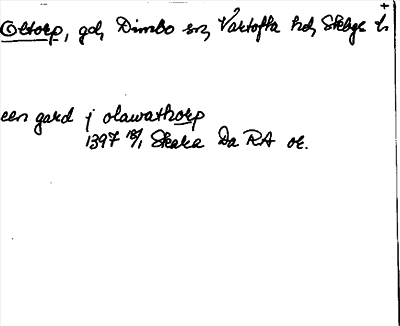 Oltorp, gd, Dimbo sn, Vartofta hd, Skbgs l.
een gard j olawathorp
1397 18/1 Skara Da RA or.